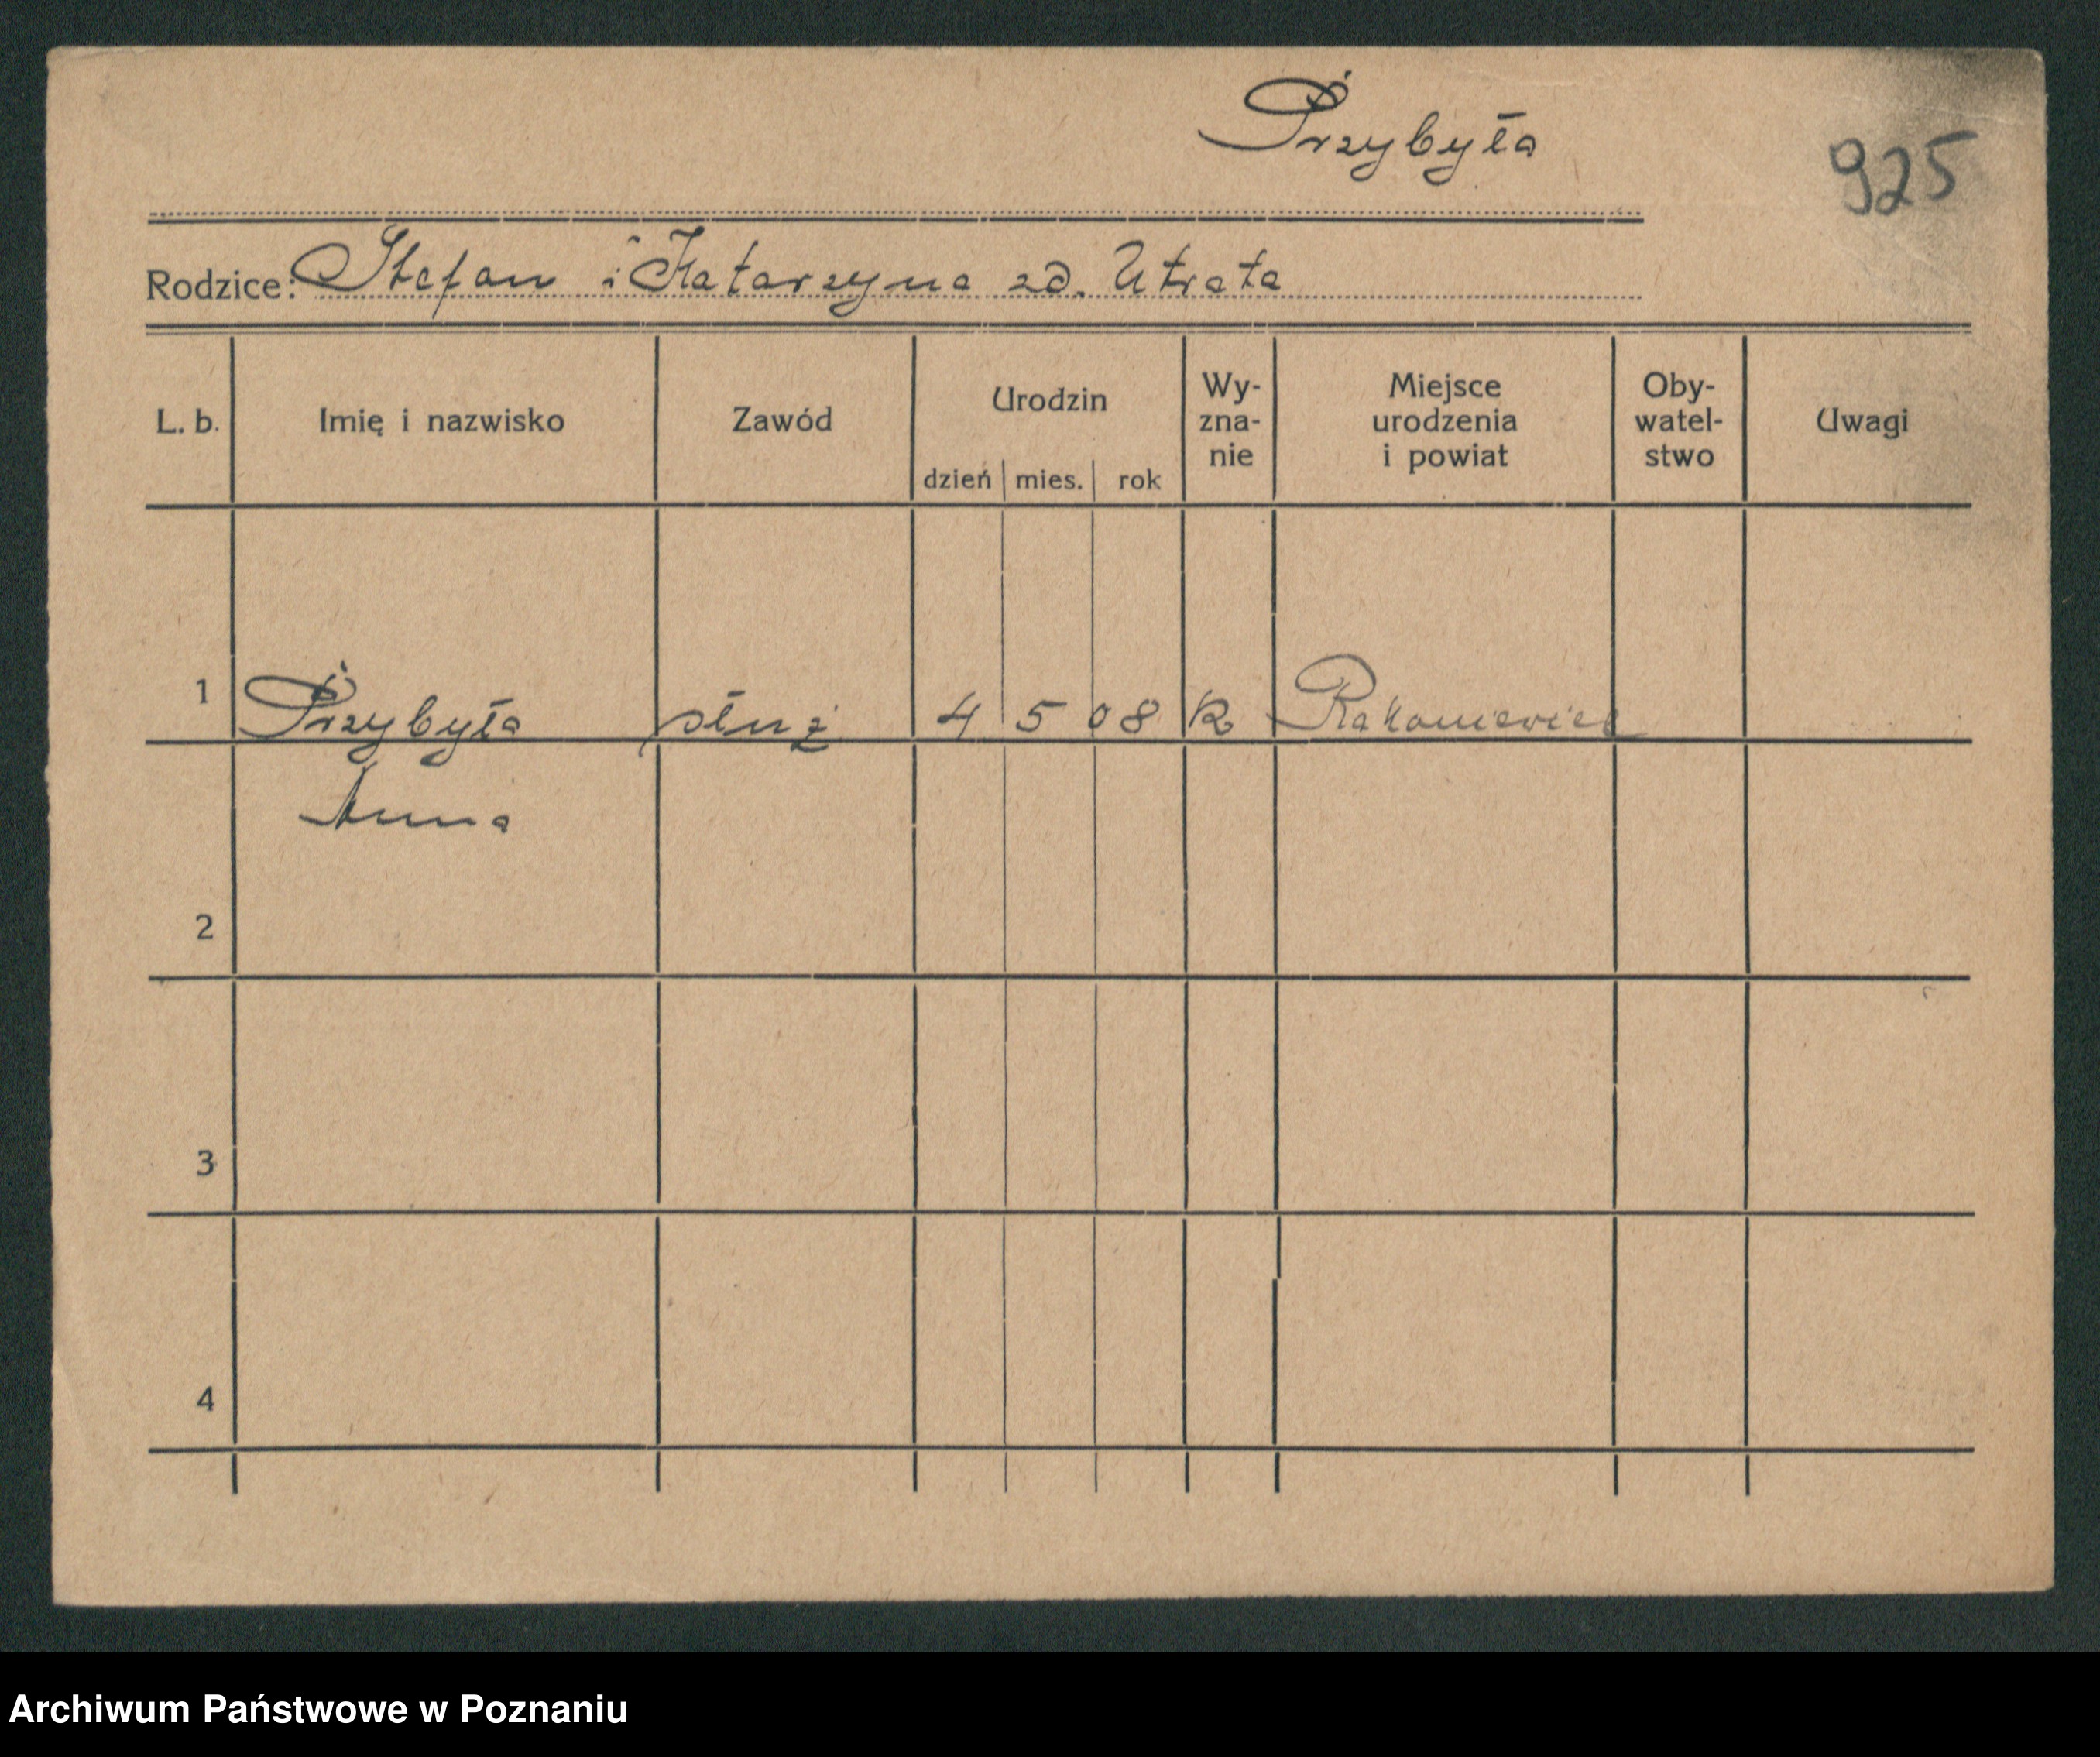 Przybyła
925
Rodzice: Stefan i Katarzyna zd. Utrata
L. b. Imię i nazwisko Zawód Urodzin dzień mies. rok Wy-zna-nie Miejsce urodzenia i powiat Oby-watel-stwo Uwagi
1 Przybyła służ 4 5 08 R Rakoniewice
Anna
2
3
4
Archiwum Państwowe w Poznaniu